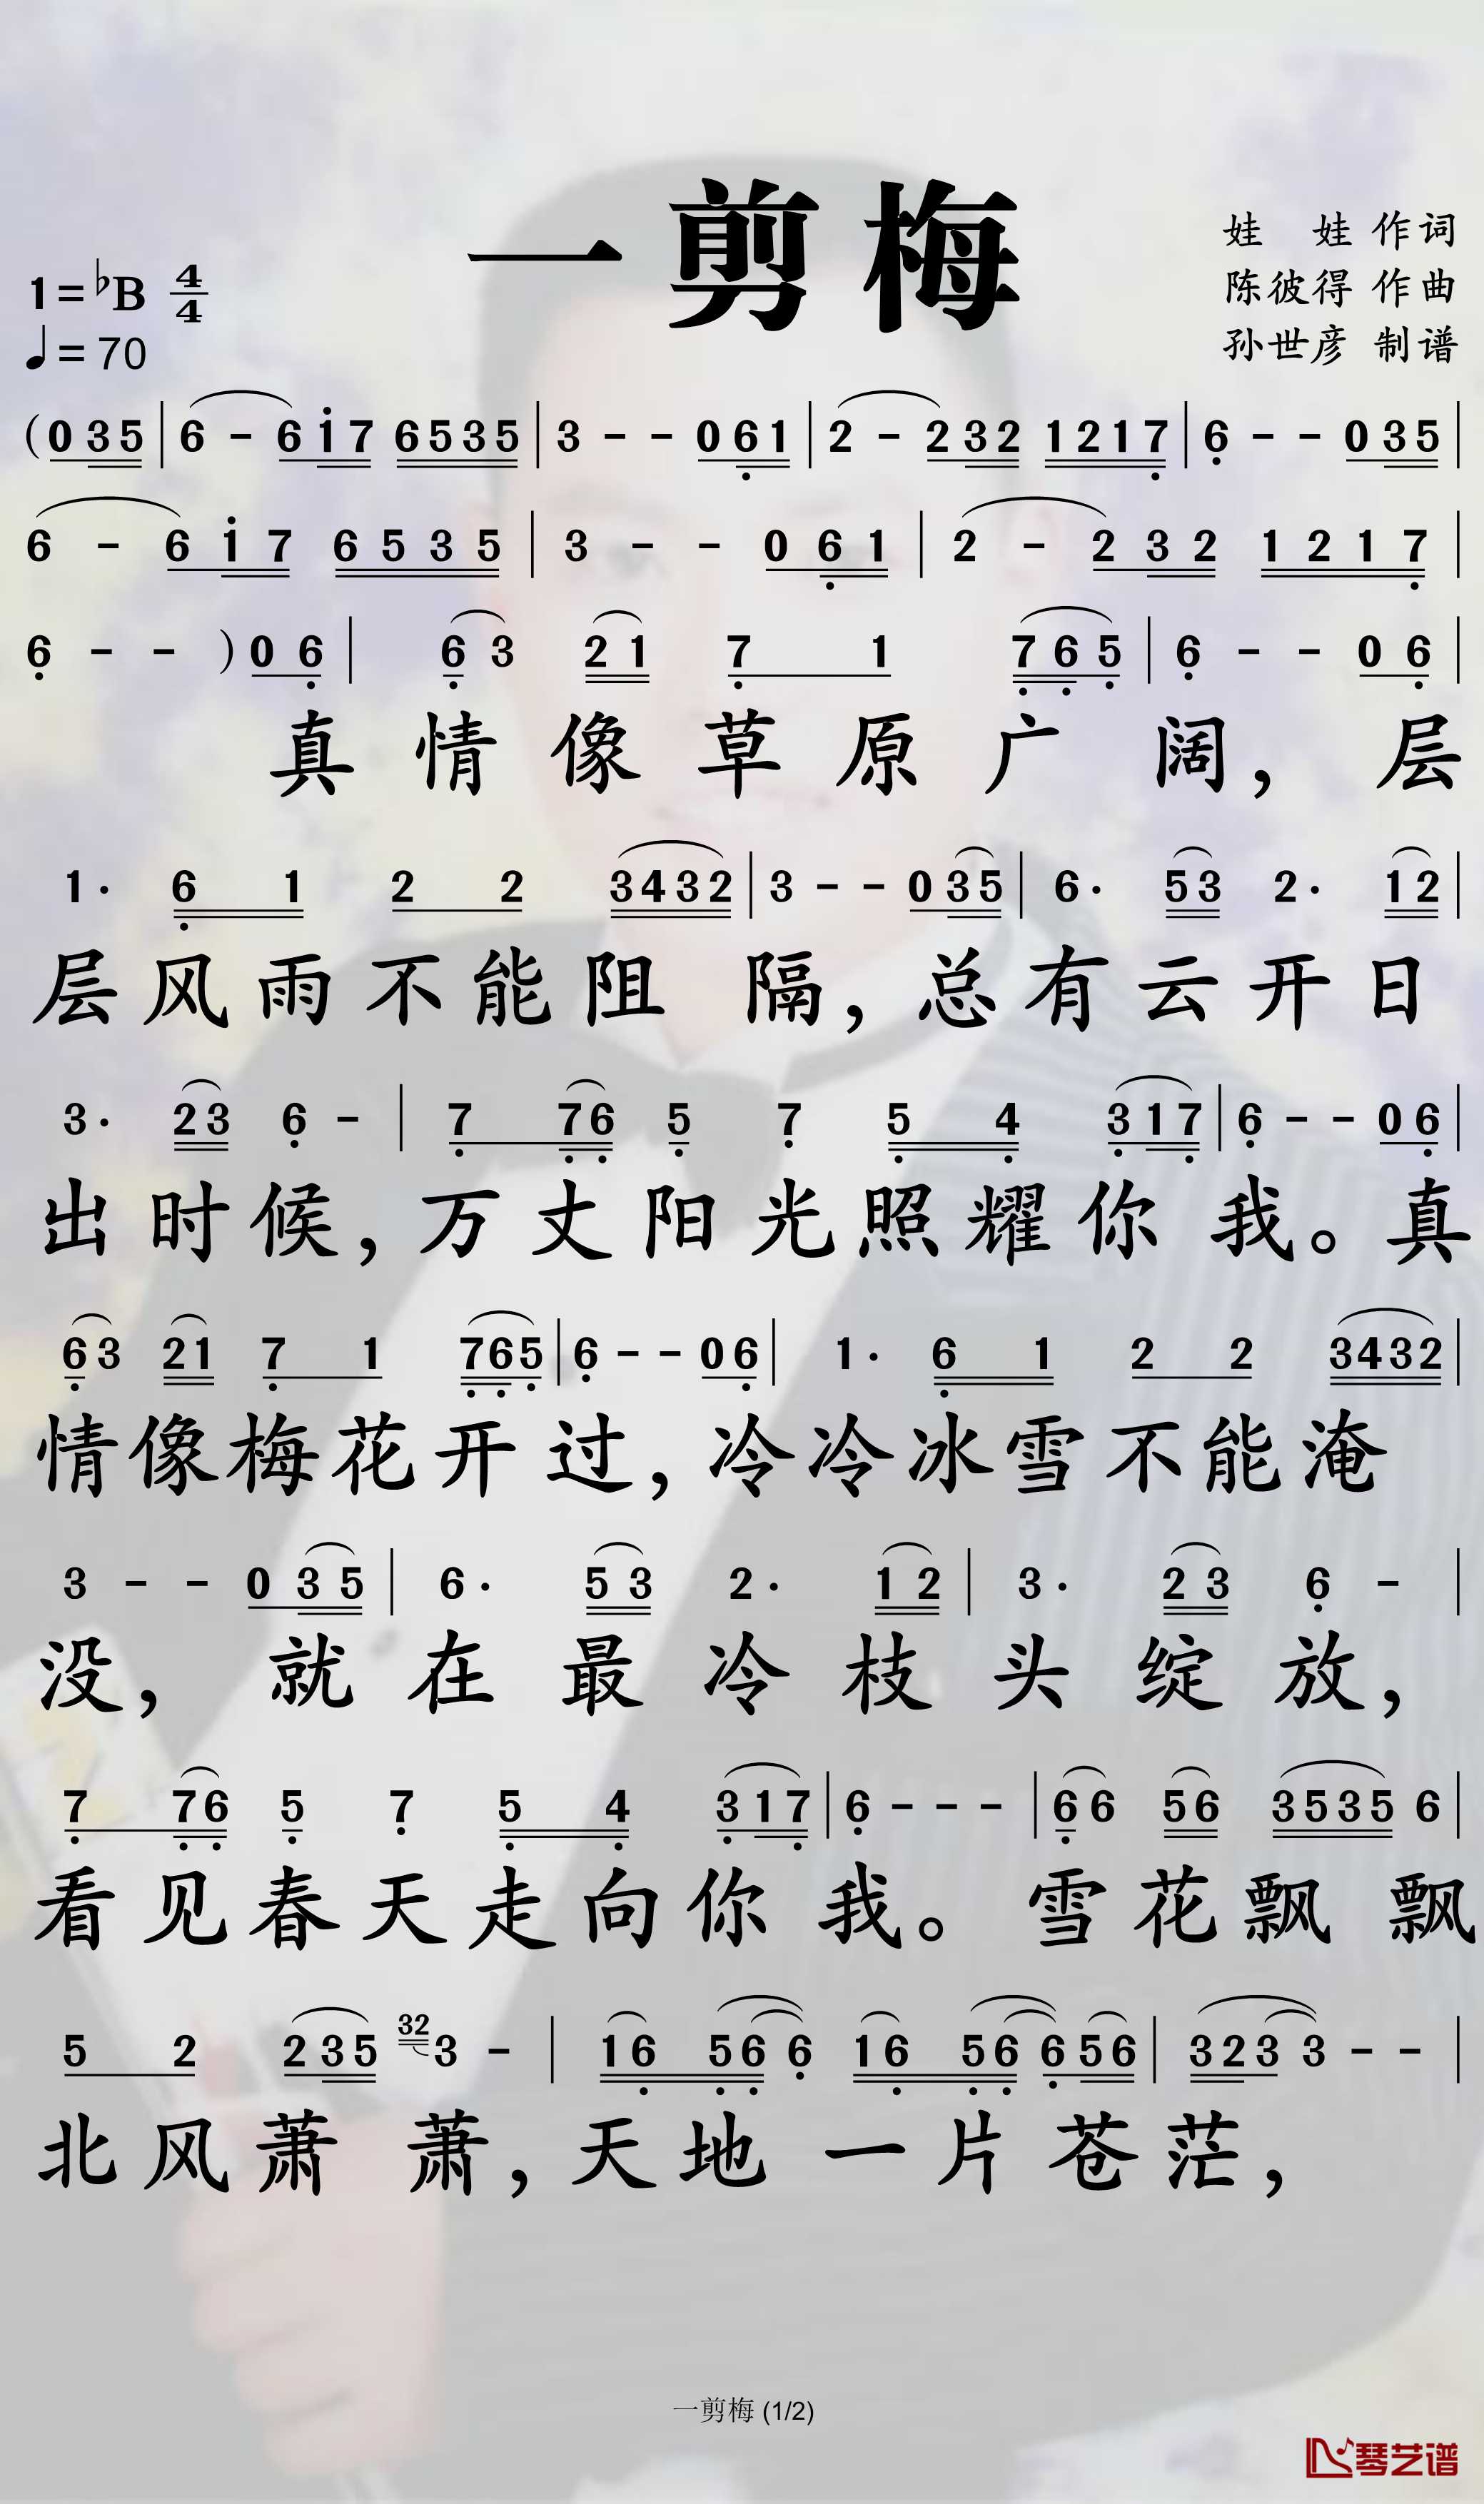 一剪梅
1=♭B 4/4
♩=70
娃 娃 作词
陈彼得 作曲
孙世彦 制谱
(0 3 5 | 6 - 6 i 7 6 5 3 5 | 3 - - 0 6 1 | 2 - 2 3 2 1 2 1 7 | 6 - - 0 3 5 |
6 - 6 i 7 6 5 3 5 | 3 - - 0 6 1 | 2 - 2 3 2 1 2 1 7 |
6 - - ) 0 6 | 6 3 2 1 7 1 7 6 5 | 6 - - 0 6 |
真情像草原广阔，层
1· 6 1 2 2 3 4 3 2 | 3 - - 0 3 5 | 6· 5 3 2· 1 2 |
层风雨不能阻 隔，总有云开日
3· 2 3 6 - | 7 7 6 5 7 5 4 3 1 7 | 6 - - 0 6 |
出时候，万丈阳光照耀你 我。真
6 3 2 1 7 1 7 6 5 | 6 - - 0 6 | 1· 6 1 2 2 3 4 3 2 |
情像梅花开过，冷冷冰雪不能淹
3 - - 0 3 5 | 6· 5 3 2· 1 2 | 3· 2 3 6 - |
没，就在最冷枝头绽放，
7 7 6 5 7 5 4 3 1 7 | 6 - - - | 6 6 5 6 3 5 3 5 6 |
看见春天走向你 我。雪花飘 飘
5 2 2 3 5 32 3 - | 1 6 5 6 6 1 6 5 6 6 5 6 | 3 2 3 3 - - |
北风萧 萧，天地 一片苍茫，
一剪梅 (1/2)
琴艺谱